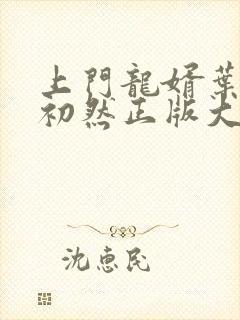 上門龍婿葉
初然正版大
沈惠民